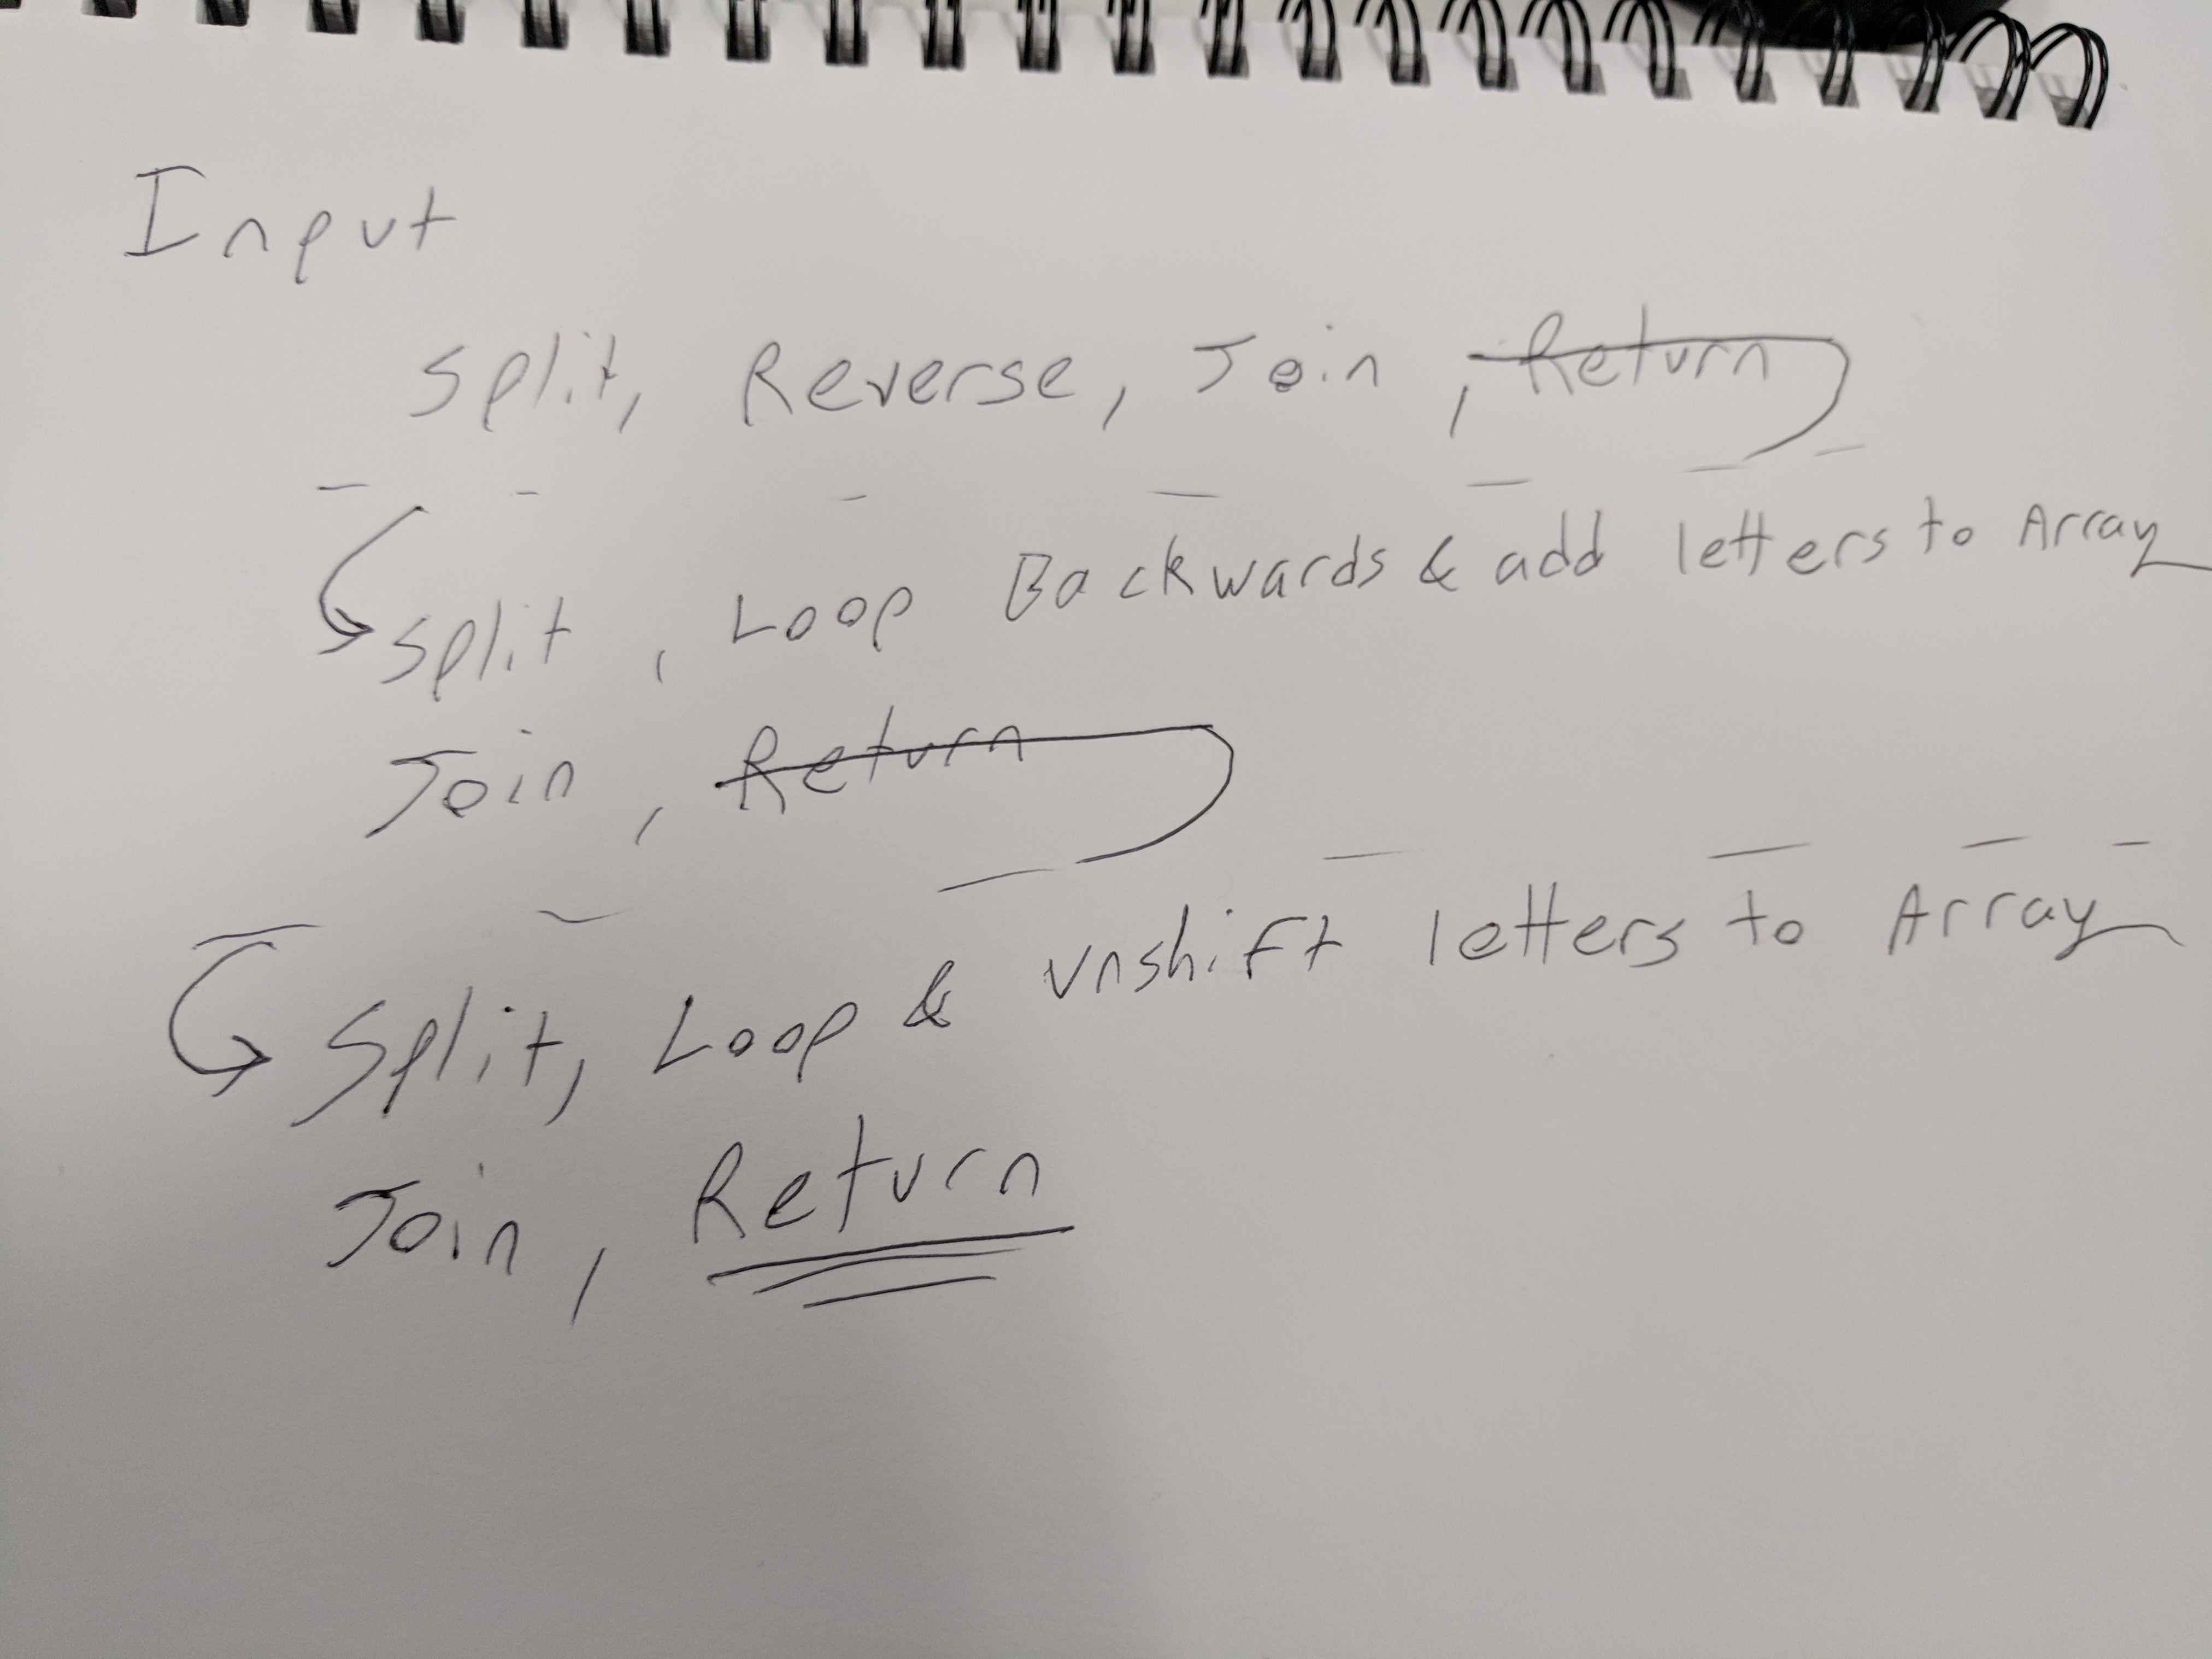 Input
Split, Reverse, Join, Return
Split, Loop Backwards & add letters to Array
Join, Return
Split, Loop & unshift letters to Array
Join, Return